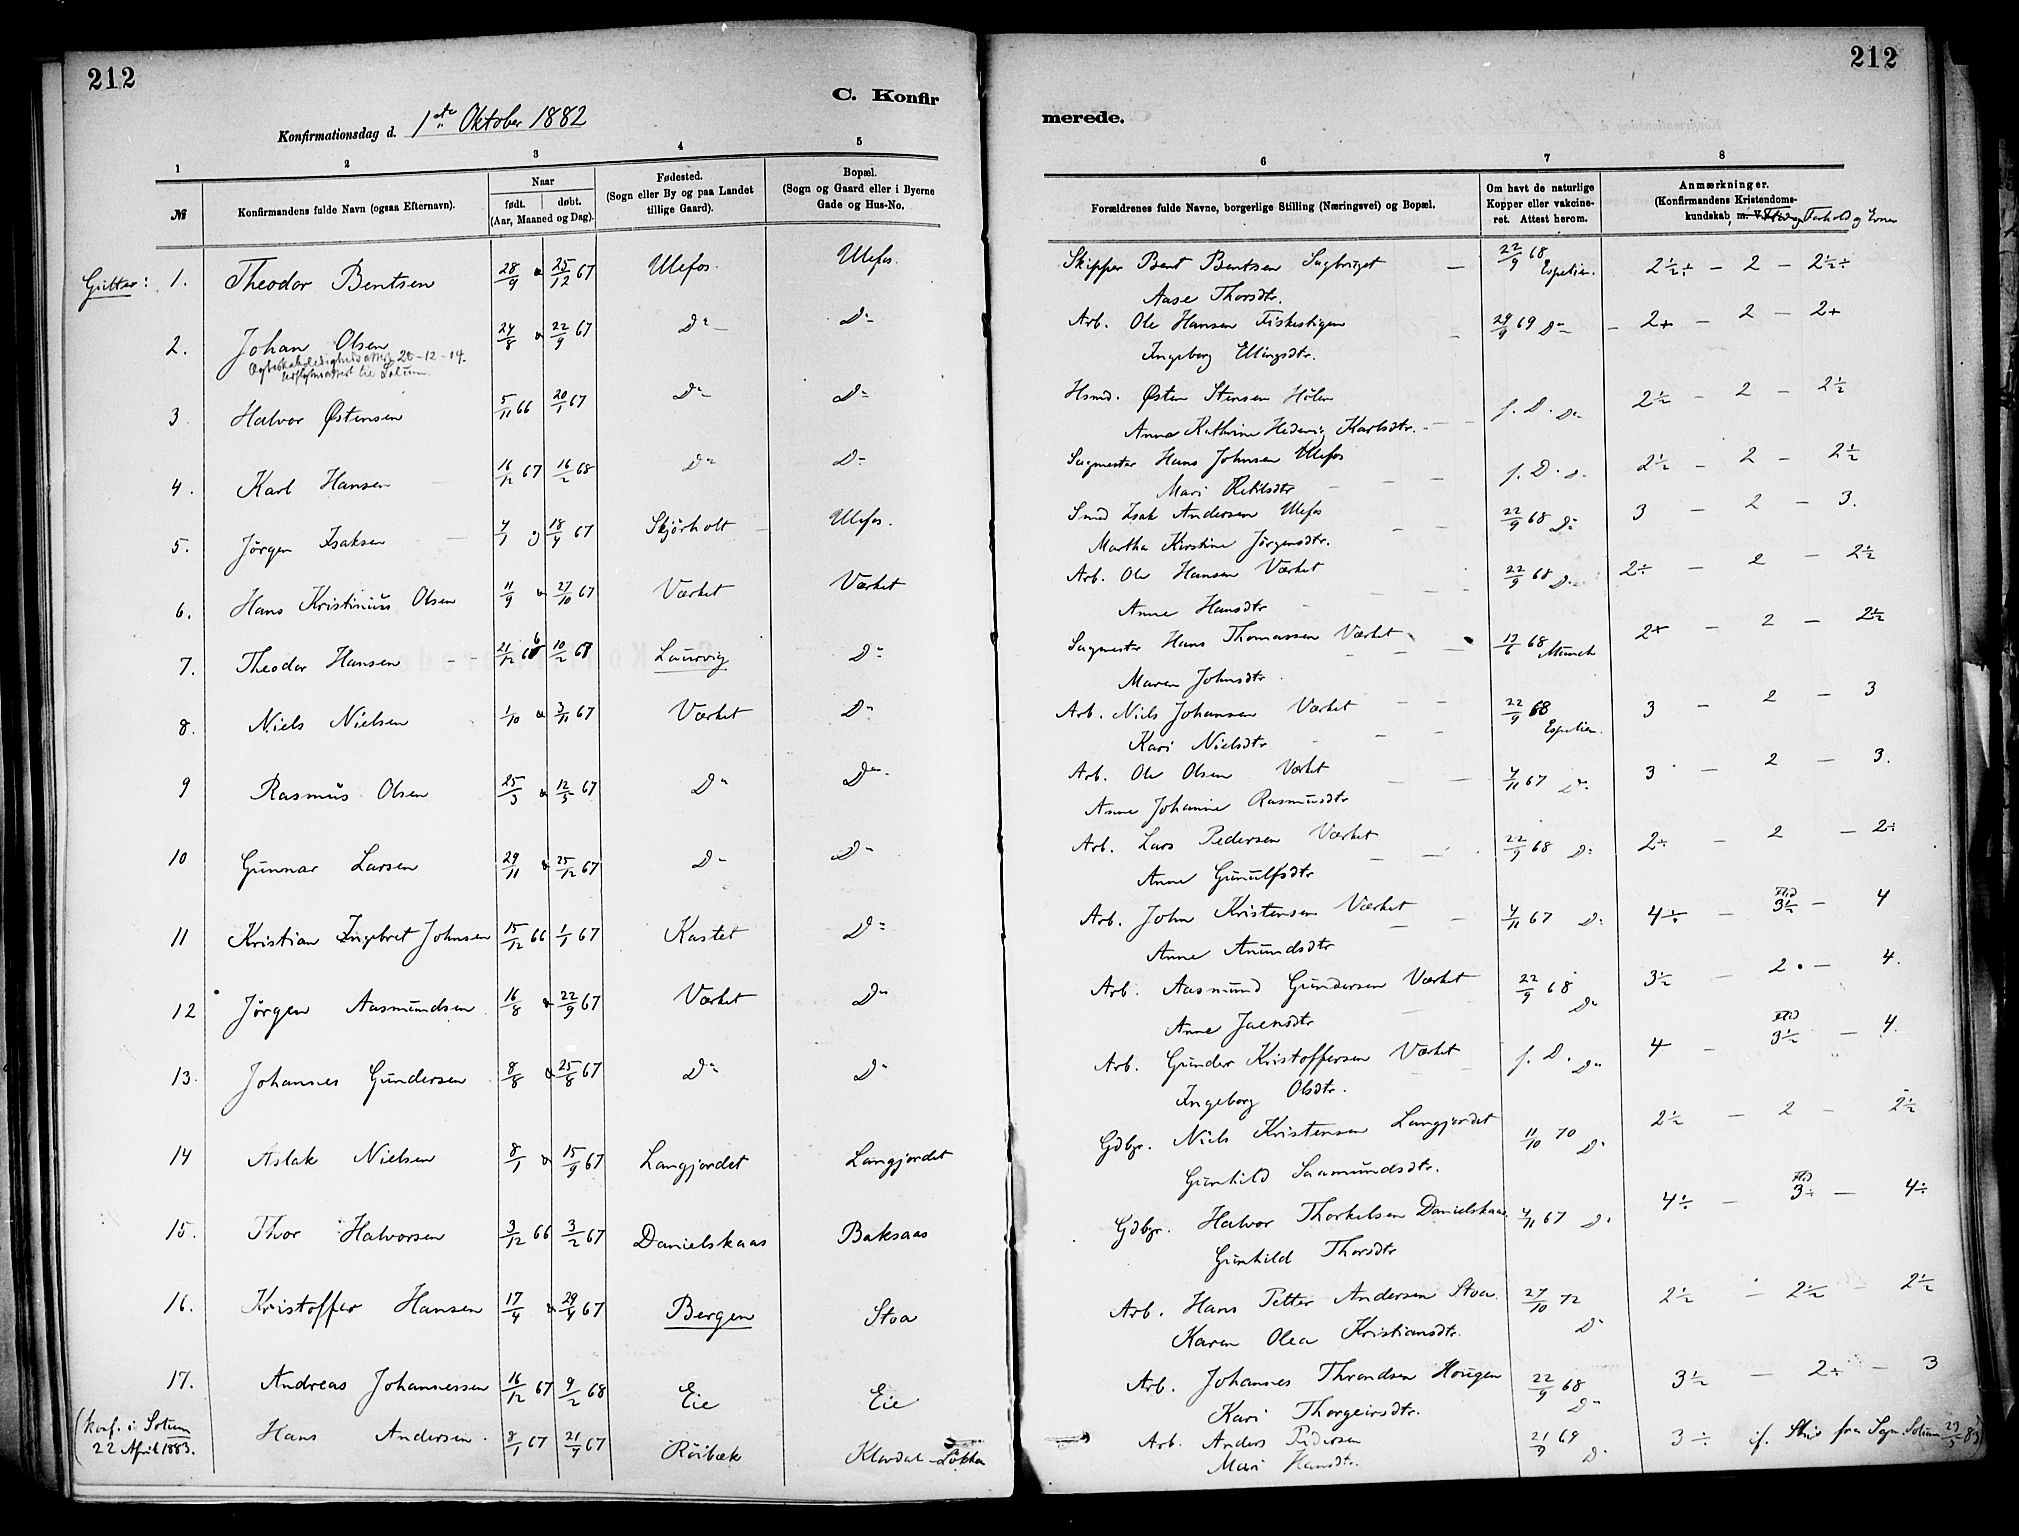 212
C. Konfir
Konfirmationsdag d. 1ste Oktober 1882
1 2 3 4 5
№
Konfirmandens fulde Navn (ogsaa Efternavn).
Naar
født. døbt.
(Aar, Maaned og Dag).
Fødested.
(Sogn eller By og paa Landet
tillige Gaard).
Bopæl.
(Sogn og Gaard eller i Byerne
Gade og Hus-No.
Gutter: 1. Theodor Bentsen 28/9 25/12 67 Ulefos. Ulefos.
2. Johan Olsen 24/8 22/9 67 Do Do
20-12-14.
til Solum.
3 Halvor Østensen 5/11 66 20/1 67 Do Do
4. Karl Hansen 16/12 67 16/2 68 Do Do
5. Jørgen Isaksen 18/4 67 Skjørholt Ulefos.
6. Hans Kristinius Olsen 11/9 27/10 67 Værket Værket
7. Theodor Hansen 21/12 66 10/2 67 Laurvig Do
8. Niels Nielsen 1/10 3/11 67 Værket Do
9 Rasmus Olsen 25/3 12/5 67 Do Do
10 Gunnar Larsen 29/11 25/12 67 Do Do
11 Kristian Ingebret Johnsen 15/12 66 1/1 67 Kastet Do
12 Jørgen Aasmundsen 16/8 22/9 67 Værket Do
13. Johannes Gundersen 8/8 25/8 67 Do Do
14 Aslak Nielsen 8/1 15/9 67 Langjordet Langjordet
15. Thor Halvorsen 3/12 66 3/2 67 Danielskaas Baksaas
16. Kristoffer Hansen 17/4 29/4 67 Bergen Stoa
17. Andreas Johannessen 16/12 67 9/2 68 Eie Eie
(konf. i Solum
22 April 1883. Hans Andersen. 8/1 67 21/9 67 Røibæk Klovdal-Løkken
212
merede.
6 7 8
Forældrenes fulde Navne, borgerlige Stilling (Næringsvei) og Bopæl.
Om havt de naturlige
Kopper eller vakcine-
ret. Attest herom.
Anmærkninger.
(Konfirmandens Kristendoms-
kundskab, m. V. Flid og Forhold og Evner
Skipper Bent Bentsen Sagbruget — 22/9 68 Espelien. 2½÷ — 2 — 2½÷
Aase Thorsdtr.
Arb. Ole Hansen Fiskestigen — 29/9 69 Do — 2+ — 2 — 2+
Ingeborg Ellingsdtr.
Hsmd. Østen Stensen Hølen f. D. Do 2½ — 2 — 2½
Anne Kathrine Hedevig Karlsdtr.
Sagmester Hans Johnsen Ulefos f. D. Do 2½ — 2 — 2½
Mari Ketilsdtr
Smed Isak Andersen Ulefos 22/9 68 Do 3 — 2 — 3.
Martha Kirstine Jørgensdtr.
Arb. Ole Hansen Værket 22/9 68 Do 2÷ — 2 — 2½
Anne Hansdtr
Sagmester Hans Thomassen Værket 17/6 68 Munch 2+ — 2 — 2½
Maren Johnsdtr
Arb. Niels Johansen Værket 22/9 68 Espelien. 3 — 2 — 3
Kari Nielsdtr
Arb. Ole Olsen Værket 4/11 67 Do 3 — 2 — 3.
Anne Johanne Rasmusdtr
Arb. Lars Pedersen Værket 22/9 68 Do 2÷ — 2 — 2÷
Anne Gunulfsdtr
Arb. John Kristensen Værket 4/11 67 Do 4÷ — Flid 3½ — 4
Anne Anundsdtr
Arb. Aasmund Gundersen Værket 22/9 68 Do 3½ — 2. — 4.
Anne Jaensdtr
Arb. Gunder Kristoffersen Værket f. D. Do 4 — Flid 3½ — 4.
Ingeborg Olsdtr.
Gdbgr. Niels Kristensen Langjordet 11/10 70 Do 2½ — 2 — 2½
Gunhild Saamundsdtr.
Gdbgr. Halvor Thorkelsen Danielskaas 4/11 67 Do 4÷ — Flid 3÷ — 4÷
Gunhild Thorsdtr
Arb. Hans Petter Andersen Stoa. 27/10 72 Do 2½ — 2½ — 2½
Karen Olea Kristiansdtr.
Arb. Johannes Throndsen Hougen 22/9 68 Do 3½ — 2+ — 3
Kari Thorgeirsdtr.
Arb. Anders Pedersen 21/9 69 Do 3÷ if. Skriv fra Sogn. Solum
Mari Hansdtr.